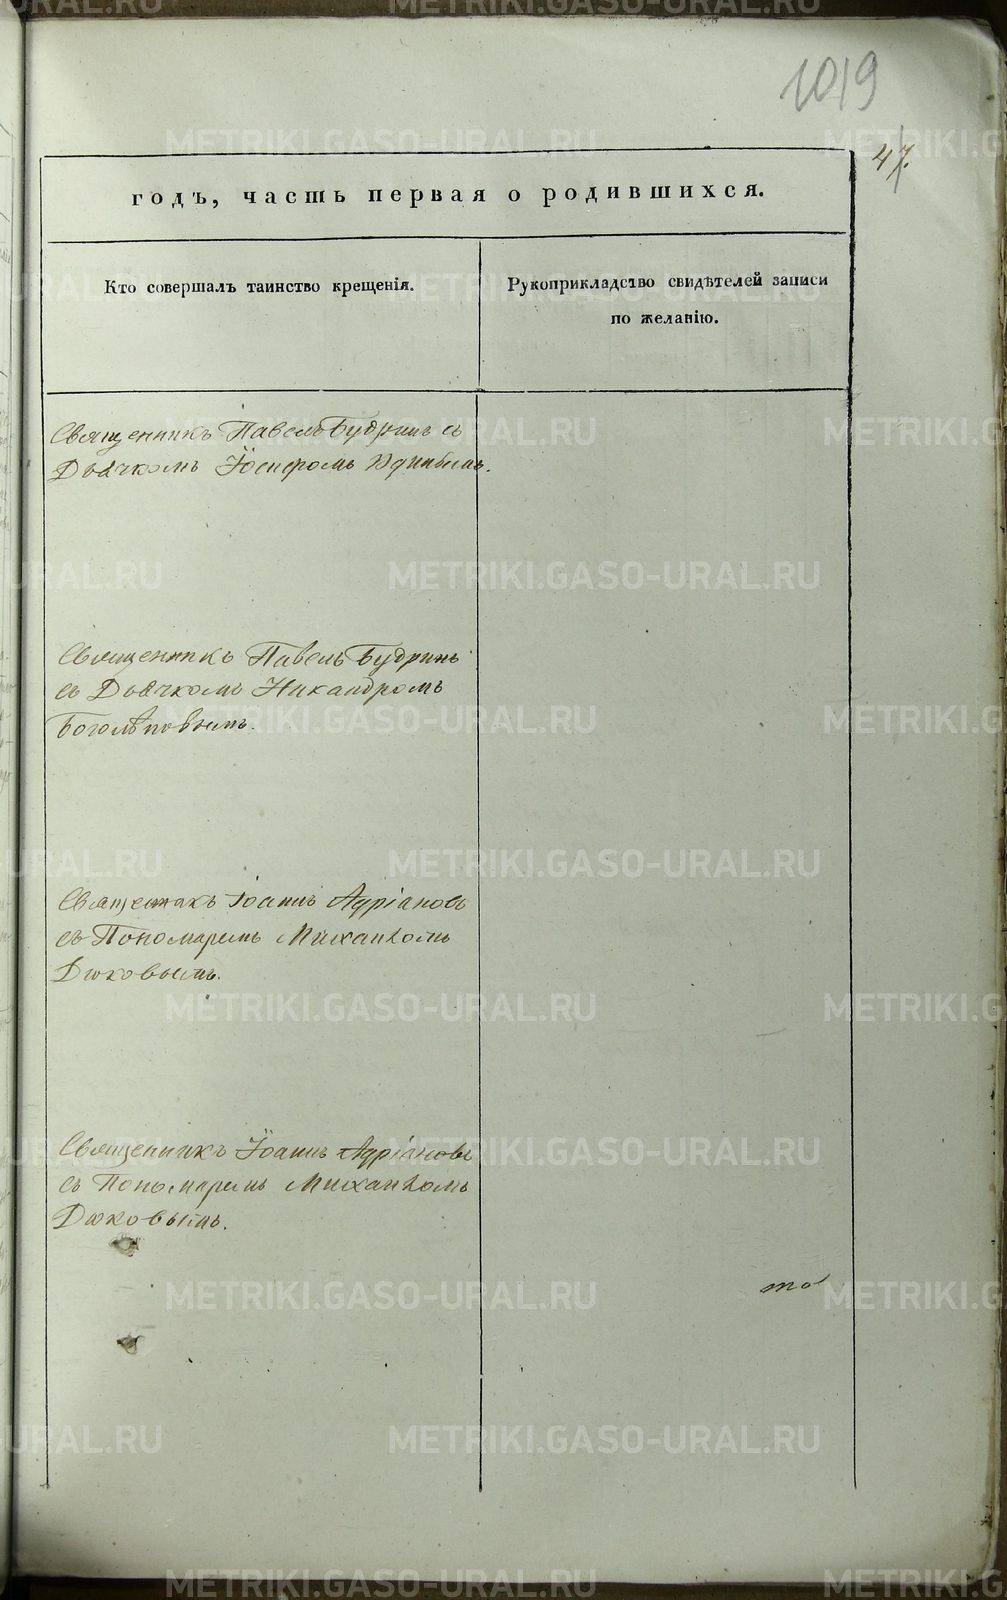 1019
47.
годъ, часть первая о родившихся.
Кто совершалъ таинство крещенія.
Рукоприкладство свидѣтелей записи
по желанію.
Священникъ Павелъ Будринъ съ
Дьячкомъ
Священникъ Павелъ Будринъ
съ Дьячкомъ Никандромъ
Боголѣповымъ.
Священникъ Іоаннъ Адріановъ
съ Пономаремъ Михаиломъ
Дюковымъ.
Священникъ Іоаннъ Адріановъ
съ Пономаремъ Михаиломъ
Дюковымъ.
то
METRIKI.GASO-URAL.RU